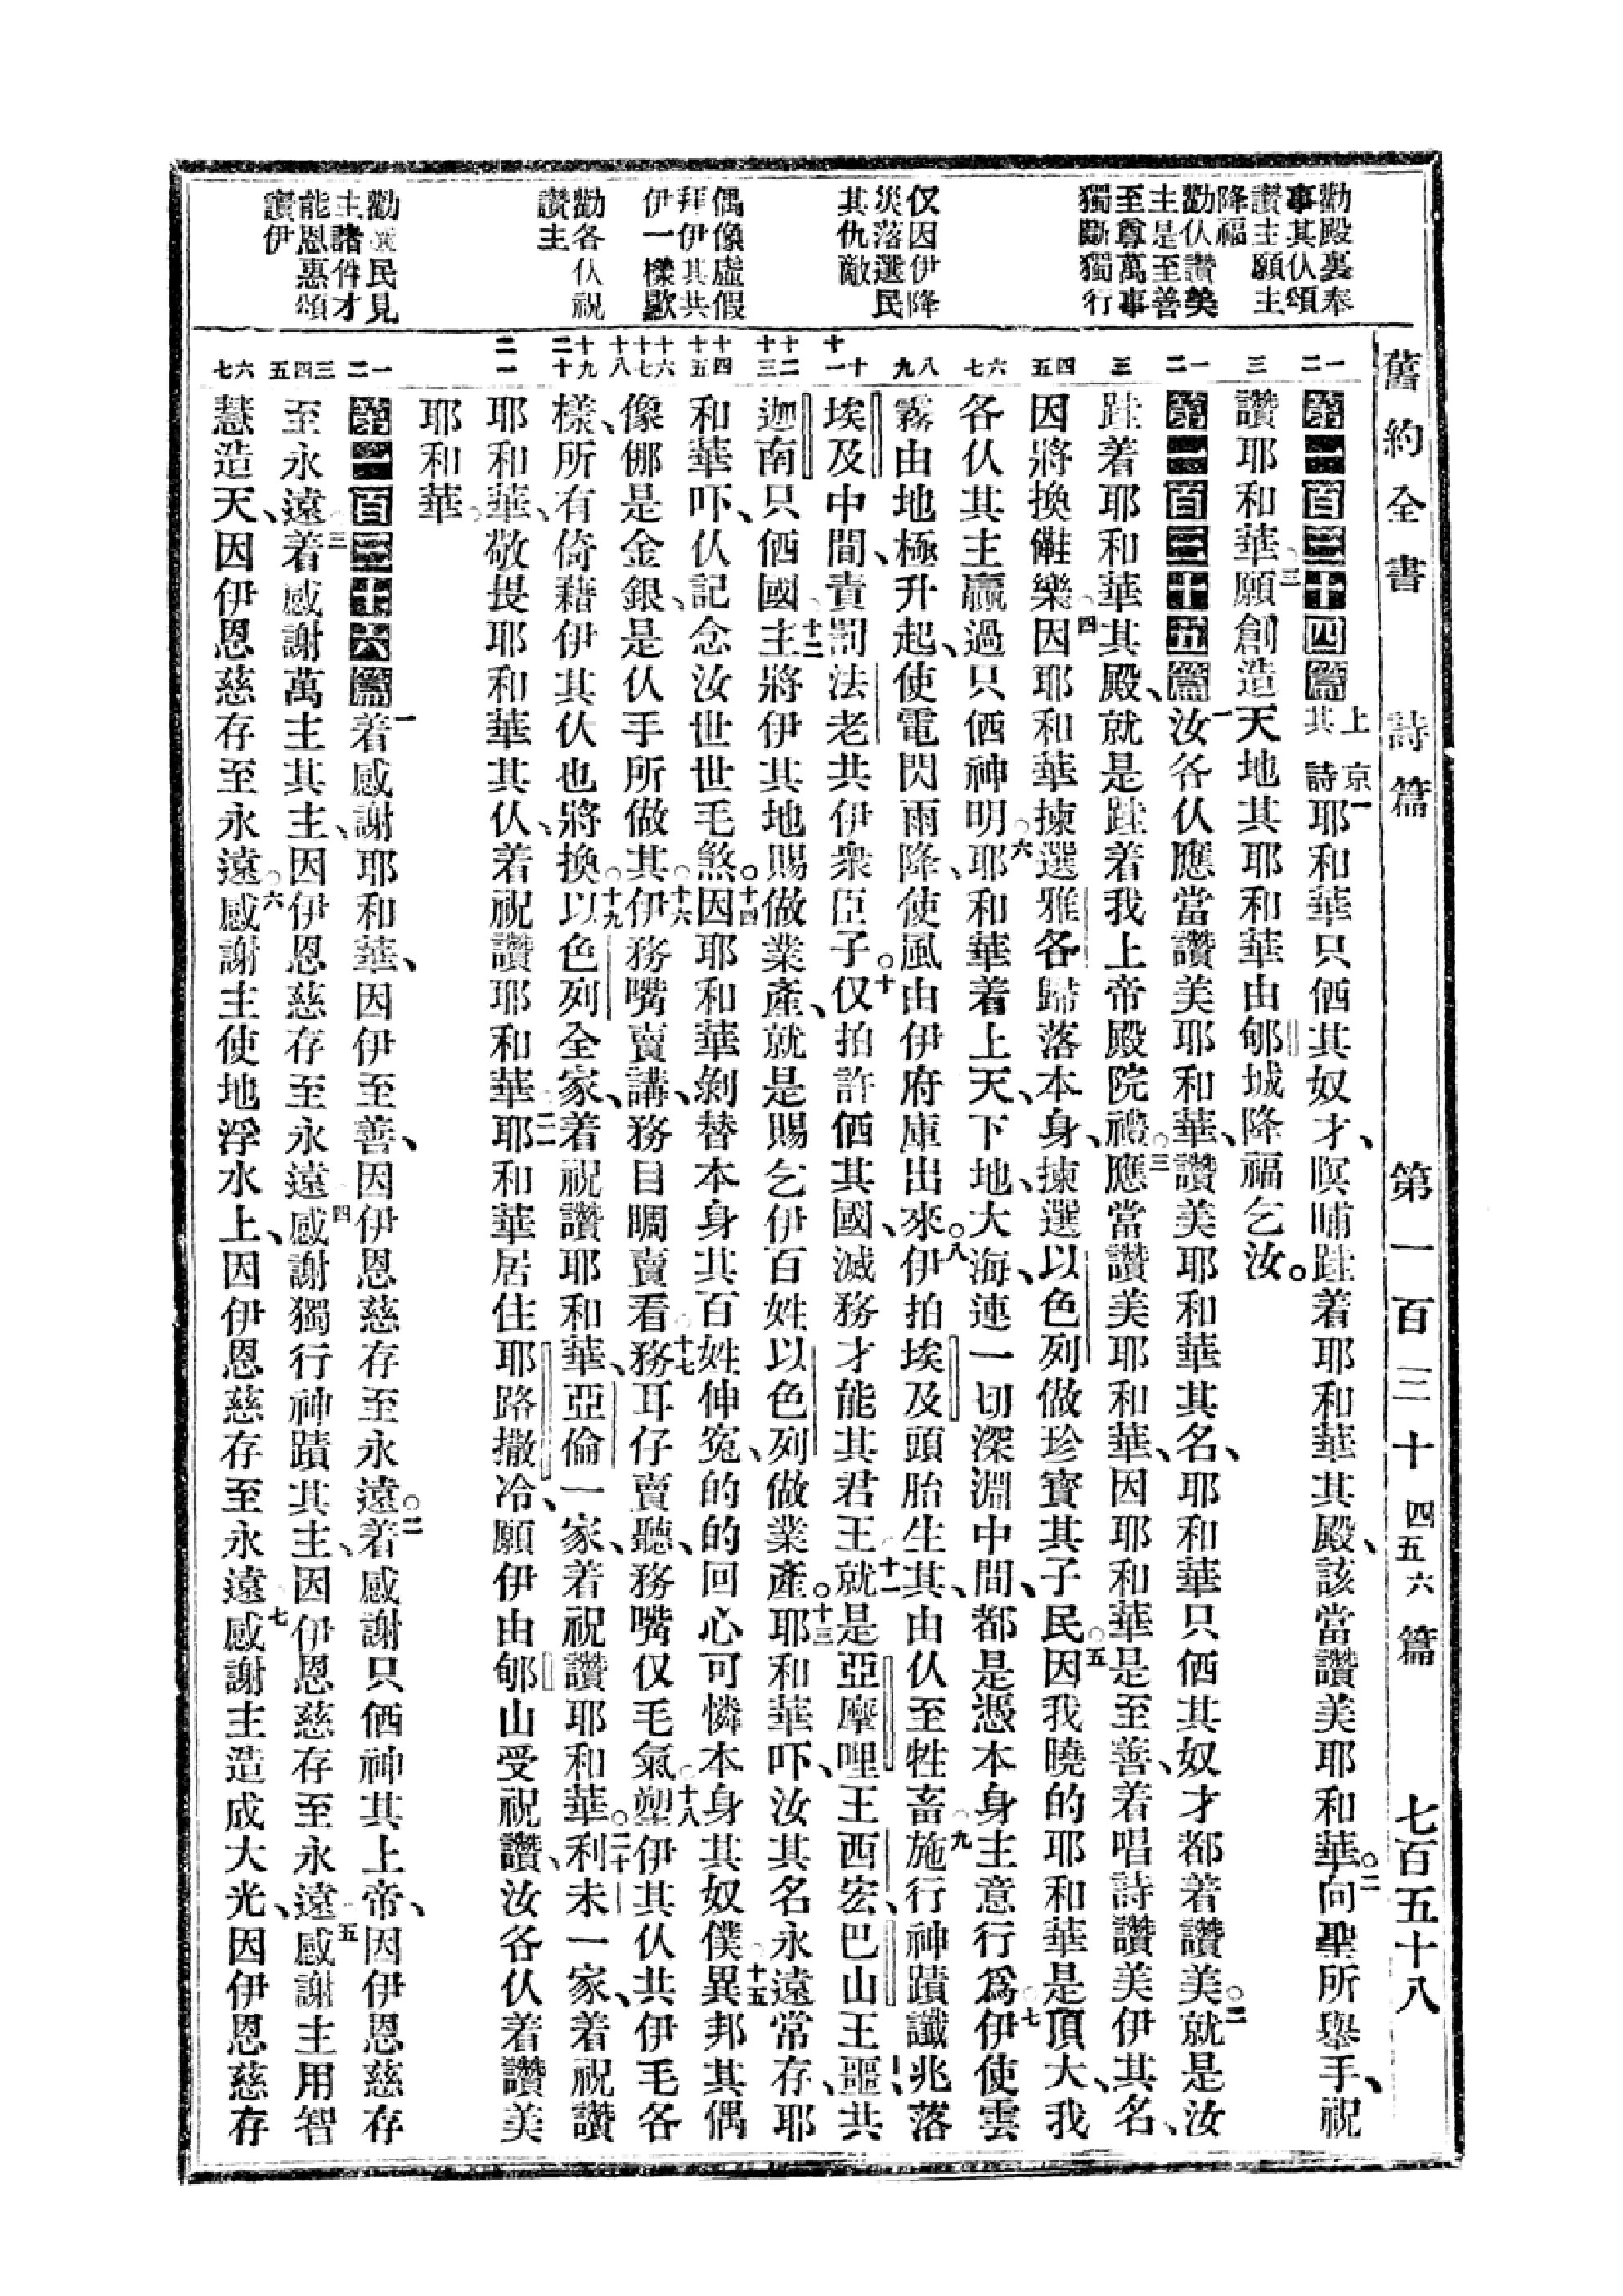 舊約全書 詩篇 第一百三十四五六篇 七百五十八
勸殿裏奉
事其仆頌
讚主願主
降福
勸仆讚美
主是至善
至尊萬事
獨斷獨行
仅因伊降
災落選民
其仇敵
偶像虛假
拜伊其共
伊一樣歇
勸各仆祝
讚主
勸選民見
主諸件才
能恩惠頌
讚伊
一二
三
一二
三
四五
六七
八九
十十一
十二十三
十四十五
十六十七十八
十九二十
二一
一二
三四五
六七
第一百三十四篇 上京其詩 一耶和華只俹其奴才、暝晡跬着耶和華其殿、該當讚美耶和華。二向聖所舉手、祝
讚耶和華。三願創造天地其耶和華由郇城降福乞汝。
第一百三十五篇 一汝各仆應當讚美耶和華、讚美耶和華其名、耶和華只俹其奴才都著讚美。二就是汝
跬着耶和華其殿、就是跬着我上帝殿院禮。三應當讚美耶和華、因耶和華是至善、着唱詩讚美伊其名、
因將換儺樂。四因耶和華揀選雅各歸落本身、揀選以色列做珍寶其子民。五因我曉的耶和華是頂大、我
各仆其主贏過只俹神明。六耶和華着上天、下地、大海、連一切深淵中間、都是憑本身主意行爲。七伊使雲
霧由地極升起、使電閃雨降、使風由伊府庫出來。八伊拍埃及頭胎生其、由仆至牲畜。九施行神蹟讖兆落
埃及中間、責罰法老共伊衆臣子。十仅拍許俹其國、滅務才能其君王。十一就是亞摩哩王西宏、巴山王噩、共
迦南只俹國主。十二將伊其地賜做業產、就是賜乞伊百姓以色列做業產。十三耶和華吓、汝其名永遠常存、耶
和華吓、仆記念汝世世毛煞。十四因耶和華剝替本身其百姓伸寃、的的回心可憐本身其奴僕。十五異邦其偶
像㑚是金銀、是仆手所做其。十六伊務嘴賣講、務目睭賣看。十七務耳仔賣聽、務嘴仅毛氣。十八塑伊其仆共伊毛各
樣、所有倚藉伊其仆也將換。十九以色列全家、着祝讚耶和華、亞倫一家、着祝讚耶和華。二十利未一家、着祝讚
耶和華、敬畏耶和華其仆、着祝讚耶和華。二一耶和華居住耶路撒冷、願伊由郇山受祝讚、汝各仆着讚美
耶和華。
第一百三十六篇 一着感謝耶和華、因伊至善、因伊恩慈存至永遠。二着感謝只俹神其上帝、因伊恩慈存
至永遠。三着感謝萬主其主、因伊恩慈存至永遠。四感謝獨行神蹟其主、因伊恩慈存至永遠。五感謝主用智
慧造天、因伊恩慈存至永遠。六感謝主使地浮水上、因伊恩慈存至永遠。七感謝主造成大光、因伊恩慈存